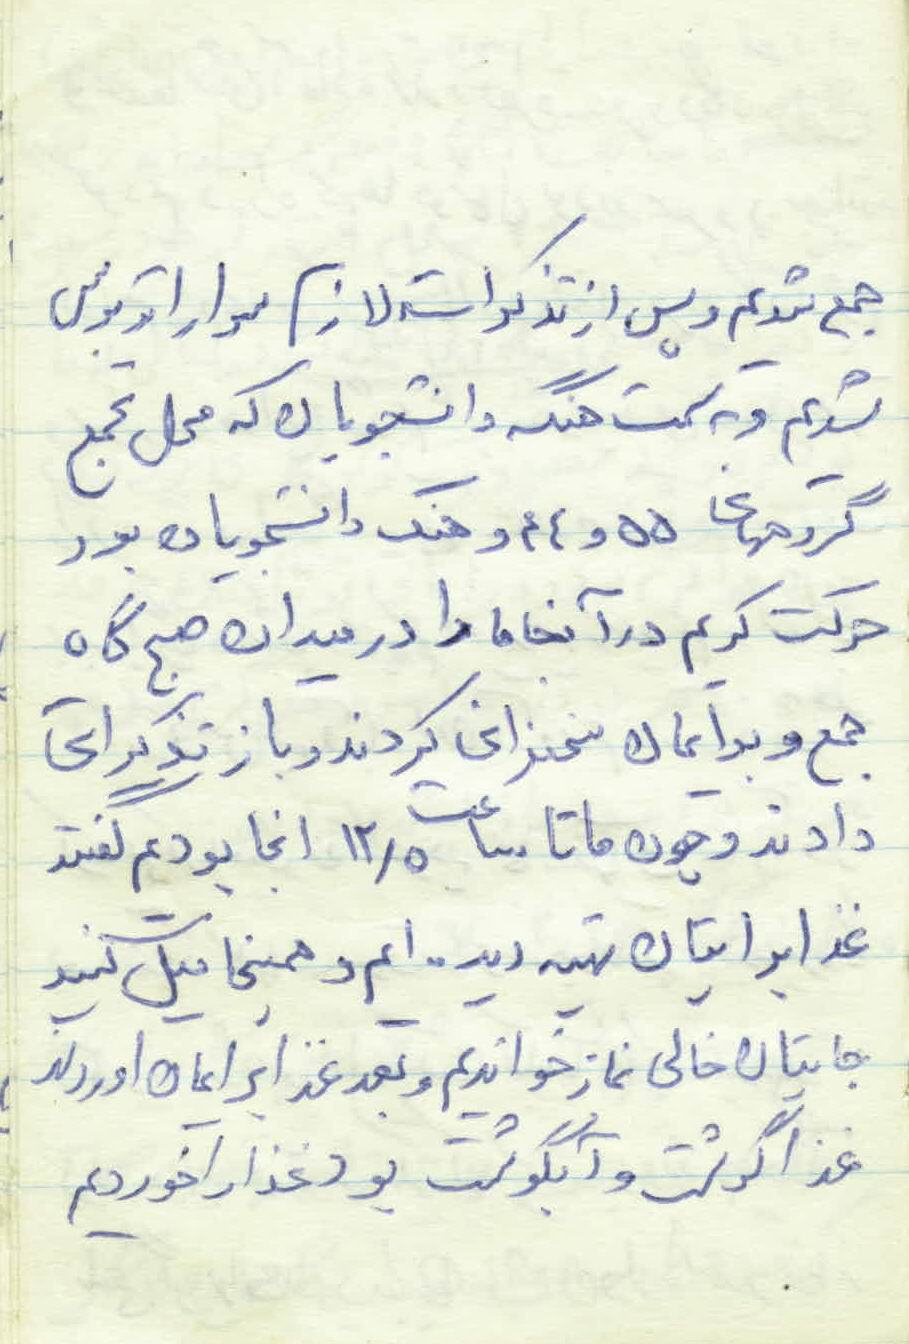 جمع شدیم و پس از تذکرات لازم سوار اتوبوس
شدیم و به سمت هنگ دانشجویان که محل تجمع
گروههای ۵۵ و ۴۴ و هنگ دانشجویان بود
حرکت کردیم در آنجا ما را در میدان صبح گاه
جمع و برایمان سخنرانی کردند و باز تذکراتی
دادند و چون ما تا ساعت ۱۲/۵ انجا بودیم گفتند
غذا برایتان تهیه دیده ایم و همینجا میل کنید
جایتان خالی نماز خواندیم و بعد غذا برایمان اوردند
غذا گوشت و آبگوشت بود غذا را خوردیم